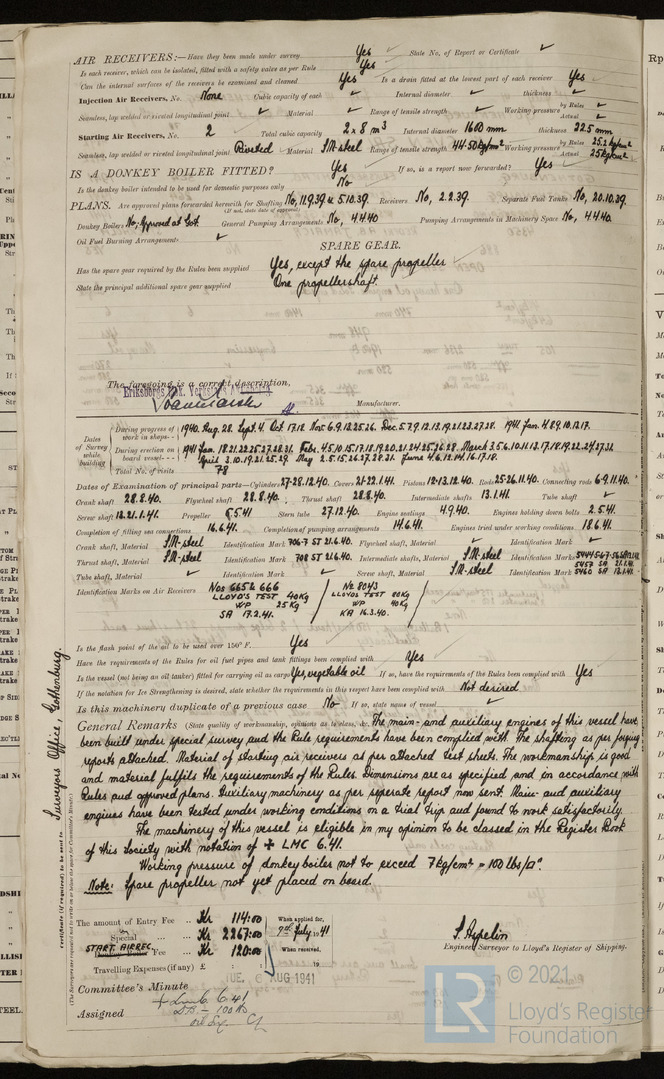 AIR RECEIVERS:—Have they been made under survey Yes ✓ State No. of Report or Certificate ✓
Is each receiver, which can be isolated, fitted with a safety valve as per Rule Yes
Can the internal surfaces of the receivers be examined and cleaned Yes Is a drain fitted at the lowest part of each receiver Yes
Injection Air Receivers, No. None Cubic capacity of each ✓ Internal diameter ✓ thickness ✓
Seamless, lap welded or riveted longitudinal joint ✓ Material ✓ Range of tensile strength ✓ Working pressure by Rules ✓ Actual ✓
Starting Air Receivers, No. 2 Total cubic capacity 2 x 8 m³ Internal diameter 1600 mm thickness 22.5 mm
Seamless, lap welded or riveted longitudinal joint Riveted Material S.M-steel Range of tensile strength 44-50 kg/mm² Working pressure by Rules 25.2 kg/cm² Actual 25 kg/cm²
IS A DONKEY BOILER FITTED? Yes If so, is a report now forwarded? Yes
Is the donkey boiler intended to be used for domestic purposes only No
PLANS. Are approved plans forwarded herewith for Shafting No, 11.9.39 & 5.10.39. Receivers No, 2.2.39. Separate Fuel Tanks No, 20.10.39.
(If not, state date of approval)
Donkey Boilers No; Approved at Got. General Pumping Arrangements No, 4.4.40 Pumping Arrangements in Machinery Space No, 4.4.40.
Oil Fuel Burning Arrangements ✓
SPARE GEAR.
Has the spare gear required by the Rules been supplied Yes, except the spare propeller
State the principal additional spare gear supplied One propellershaft.
The foregoing is a correct description,
Manufacturer.
Dates of Survey while building
During progress of work in shops-- 1940. Aug. 28. Sept. 4. Oct. 17.18. Nov. 6.9.13.25.26. Dec. 5.7.9.12.13.19.21.23.27.28. 1941 Jan. 4.8.9.10.13.17.
During erection on board vessel--- 1941 Jan. 18.21.22.25.27.28.31. Febr. 4.5.10.15.17.18.19.20.21.24.25.26.28. March 3.5.6.10.11.13.17.18.19.22.24.27.31.
April 3.10.19.21.25.29. May 2.5.15.26.27.28.31. June 4.6.12.14.16.17.18.
Total No. of visits 78
Dates of Examination of principal parts—Cylinders 27-28.12.40. Covers 21-22.1.41. Pistons 12-13.12.40. Rods 25-26.11.40. Connecting rods 6-9.11.40.
Crank shaft 28.8.40. Flywheel shaft 28.8.40. Thrust shaft 28.8.40. Intermediate shafts 13.1.41. Tube shaft ✓
Screw shaft 13.21.1.41. Propeller 5.5.41 Stern tube 27.12.40. Engine seatings 4.9.40. Engines holding down bolts 2.5.41.
Completion of fitting sea connections 16.6.41. Completion of pumping arrangements 14.6.41. Engines tried under working conditions 18.6.41.
Crank shaft, Material S.M-steel Identification Mark 706-7 ST 21.6.40. Flywheel shaft, Material ✓ Identification Mark ✓
Thrust shaft, Material S.M-steel Identification Mark 708 ST 21.6.40. Intermediate shafts, Material S.M-steel Identification Marks
Tube shaft, Material ✓ Identification Mark ✓ Screw shaft, Material S.M-steel Identification Mark 5460 SA 13.1.41.
Identification Marks on Air Receivers Nos 665 & 666
LLOYD'S TEST 40KG
WP 25KG
SA 17.2.41.
No 8043
LLOYDS TEST 80KG
WP 40KG
KA 16.3.40.
Is the flash point of the oil to be used over 150° F. Yes
Have the requirements of the Rules for oil fuel pipes and tank fittings been complied with Yes
Is the vessel (not being an oil tanker) fitted for carrying oil as cargo Yes, vegetable oil If so, have the requirements of the Rules been complied with Yes
If the notation for Ice Strengthening is desired, state whether the requirements in this respect have been complied with Not desired
Is this machinery duplicate of a previous case No If so, state name of vessel ✓
General Remarks (State quality of workmanship, opinions as to class, &c. The main- and auxiliary engines of this vessel have
been built under special survey and the Rule requirements have been complied with. The shafting as per forging
reports attached. Material of starting air receivers as per attached test sheets. The workmanship is good
and material fulfils the requirements of the Rules. Dimensions are as specified and in accordance with
Rules and approved plans. Auxiliary machinery as per seperate report now sent. Main- and auxiliary
engines have been tested under working conditions on a trial trip and found to work satisfactorily.
The machinery of this vessel is eligible in my opinion to be classed in the Register Book
of this Society with notation of ✠ LMC 6.41.
Working pressure of donkey boiler not to exceed 7 kg/cm² = 100 lbs/□".
Note: Spare propeller not yet placed on board.
Certificate (if required) to be sent to Surveyors Office, Gothenburg.
The amount of Entry Fee .. Kr 114:00 When applied for,
Special .. Kr 2267:00 9th July 1941
START. AIRREC. Fee .. Kr 120:00 When received,
Travelling Expenses (if any) £ : : 19
S. Aspelin
Engineer Surveyor to Lloyd's Register of Shipping.
Committee's Minute TUE. 6 AUG 1941
Assigned + Lmc 6.41
D.B. - 100 lb
© 2021
LR
Lloyd's Register
Foundation